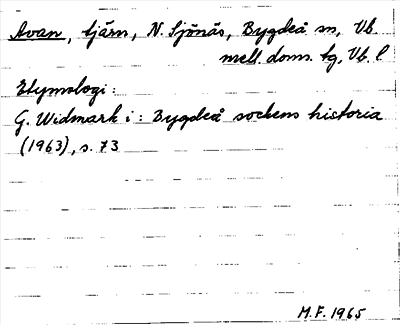 Avan, tjärn, N. Sjönäs, Bygdeå sn, Vb
mell. doms. tg, Vb. l
Etymologi:
G. Widmark i: Bygdeå sockens historia
(1963), s. 73
M.F. 1965